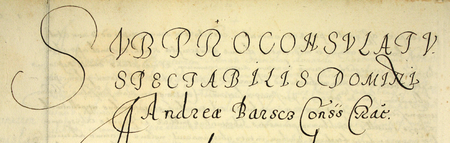 SVB PROCONSVLATV
SPECTABILIS DOMINI
Andreæ Barscz Conss Crac: